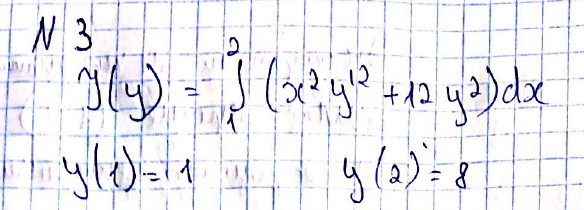 N 3
J(y) = ∫₁² (x² y'² + 12 y²) dx
y(1) = 1 y(2) = 8